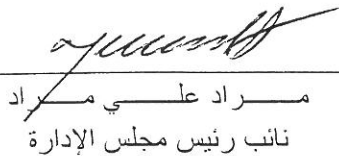 مـــراد علـــي مـــراد
نائب رئيس مجلس الإدارة